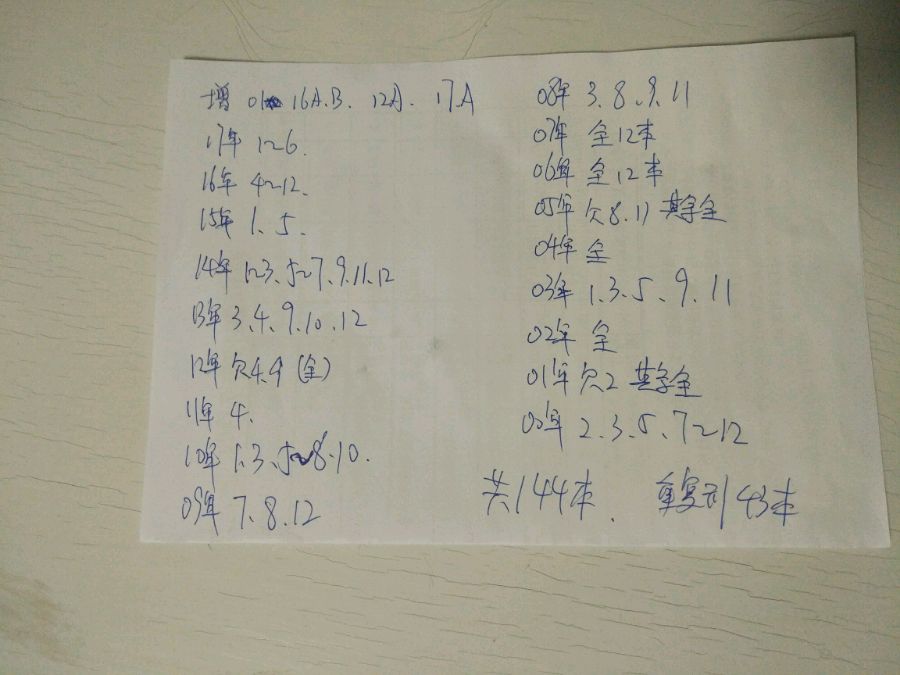 增 01 16A.B. 12A. 17A
17年 1~6.
16年 4~12.
15年 1.5.
14年 1~3.5~7.9.11.12
13年 3.4.9.10.12
12年 欠4.9 (全)
11年 4.
10年 1.3.5~8.10.
09年 7.8.12
08年 3.8.9.11
07年 全12本
06年 全12本
05年 欠8.11 其字全
04年 全
03年 1.3.5.9.11
02年 全
01年 欠2 其字全
00年 2.3.5.7~12
共144本. 重复 43本